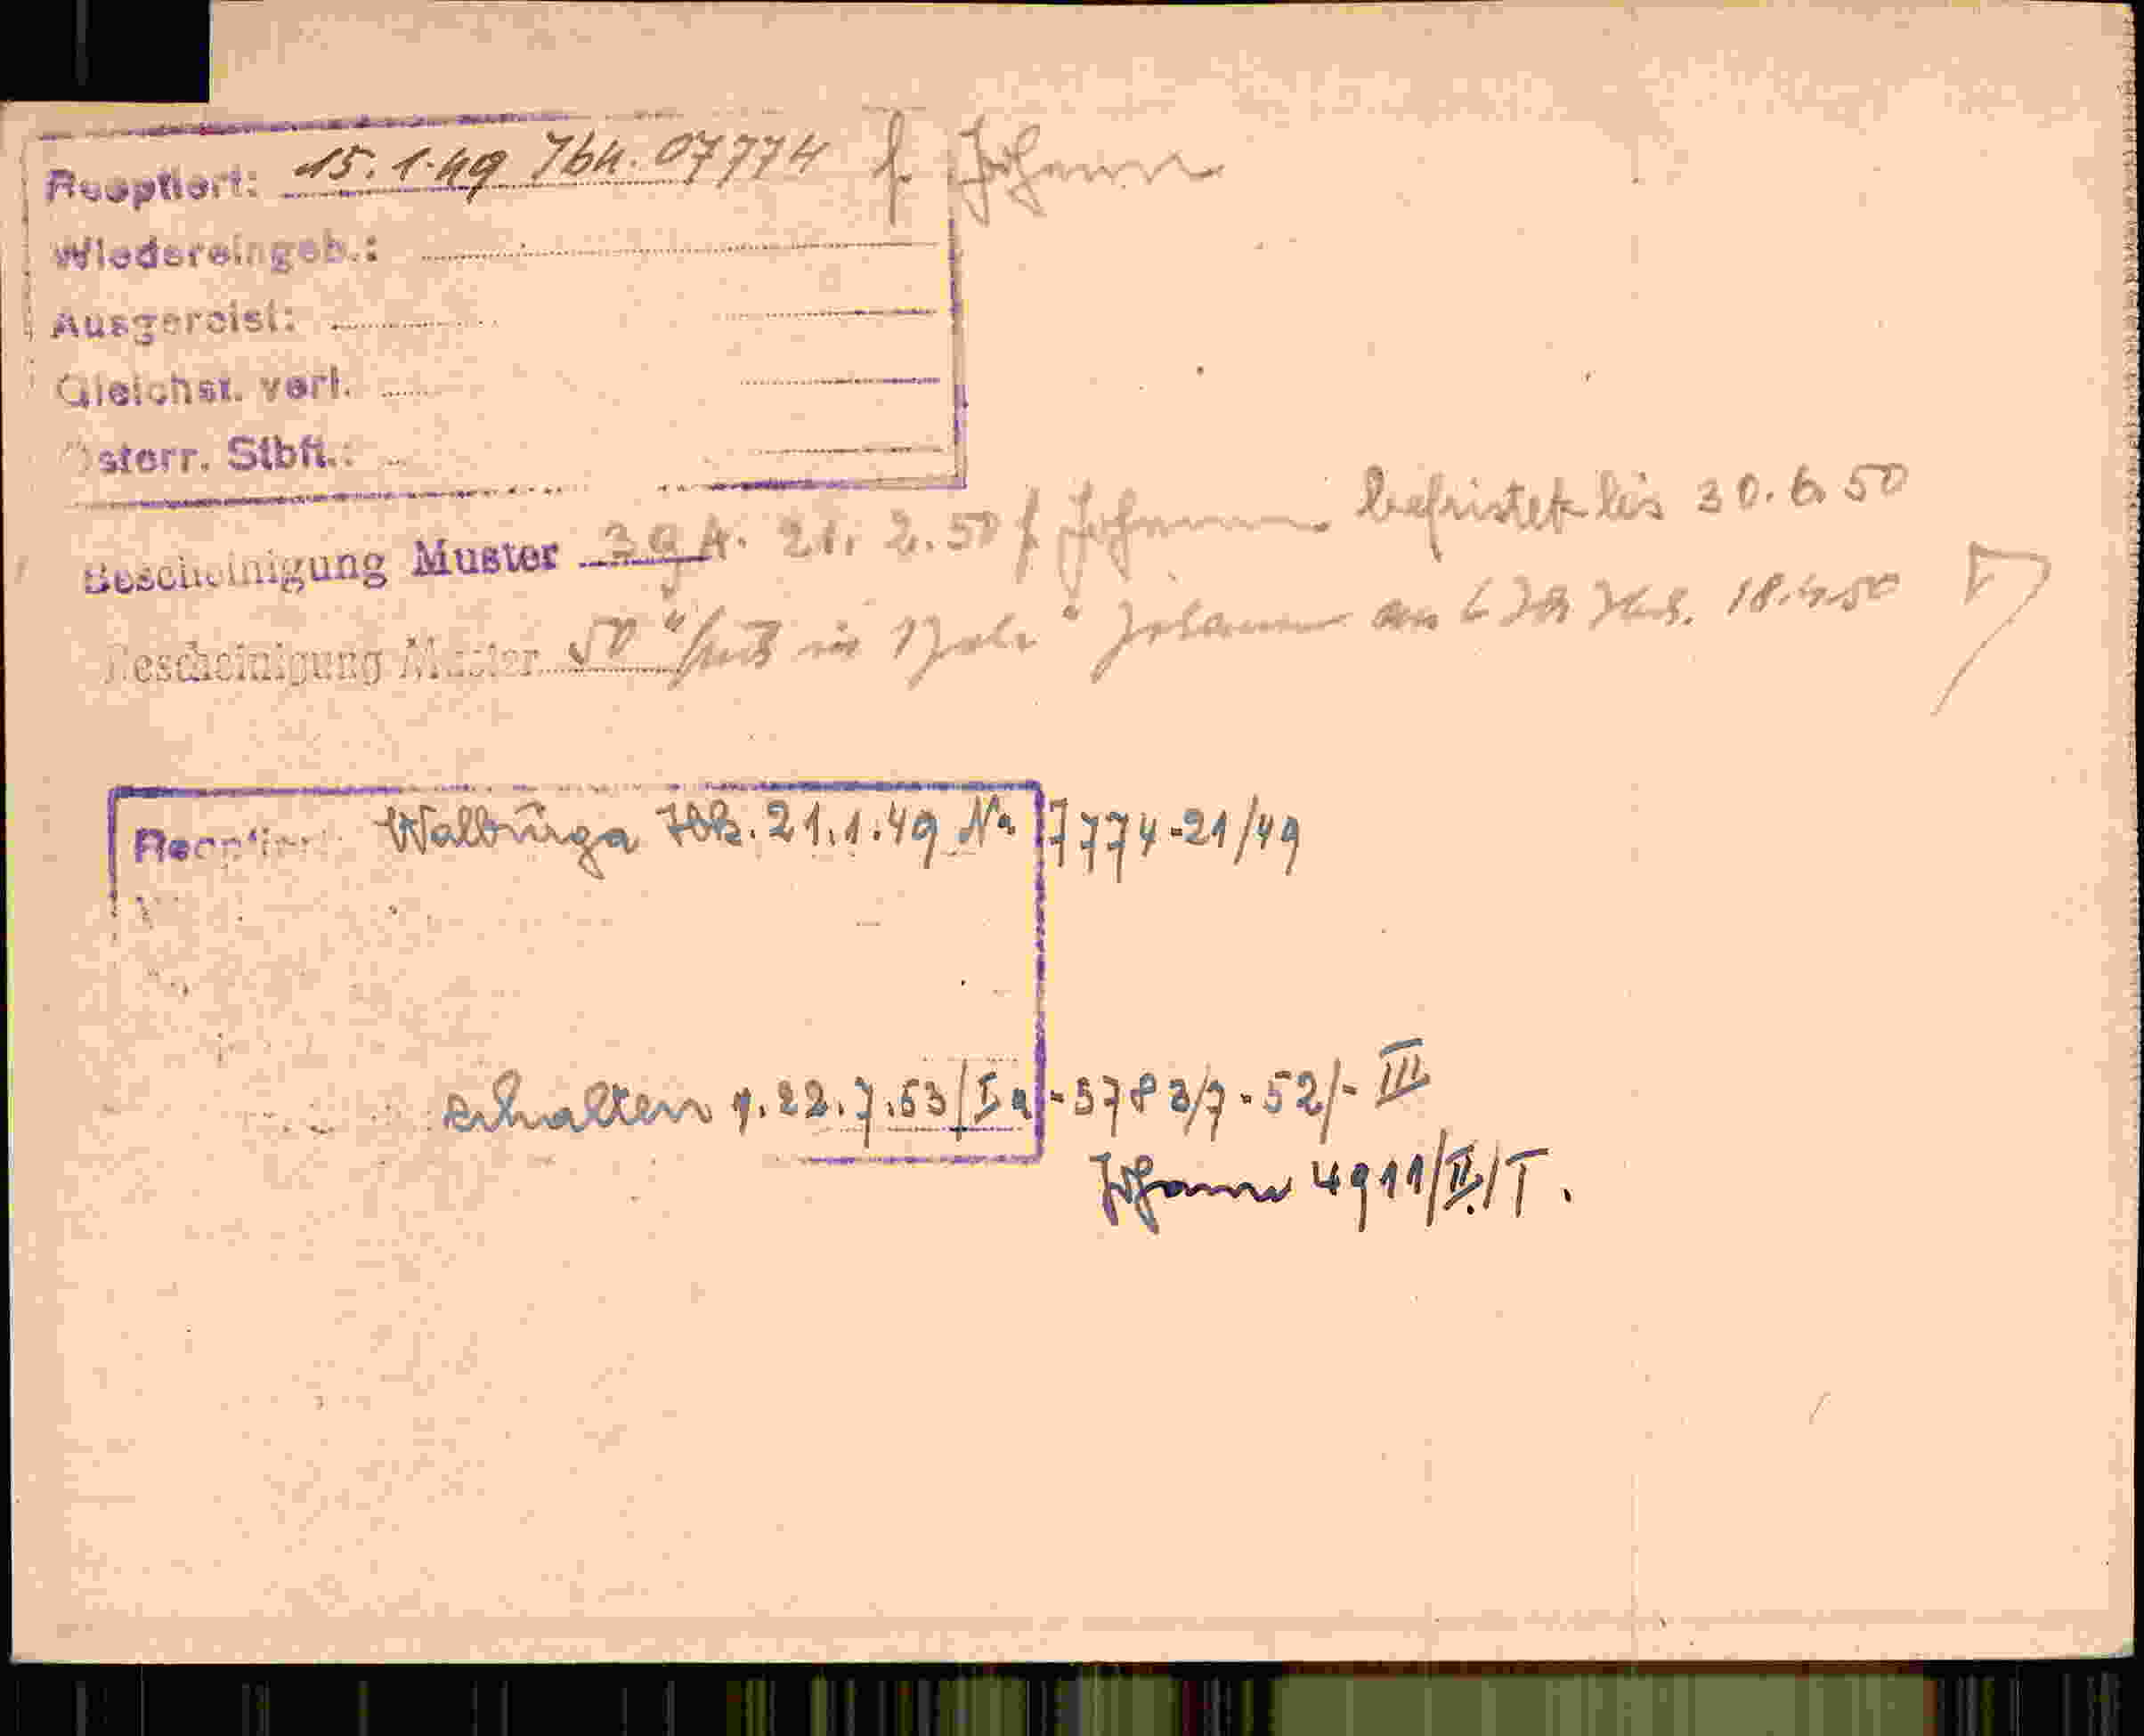 Reoptiert: 15.1.49 Ibk. 07774 f. Johann
Wiedereingeb.:
Ausgereist:
Gleichst. verl.
Österr. Stbft.:
Bescheinigung Muster 39 A. 21. 2. 50 f Johann befristet bis 30. 6. 50
Bescheinigung Muster 50 " in " Johann am Ibk. 18.4.50
Reoptiert Walburga Ibk. 21.1.49 Nr 7774-21/49
erhalten 22.7.53/Ia-3783/7-52/- III
Johann 4911/II/T.